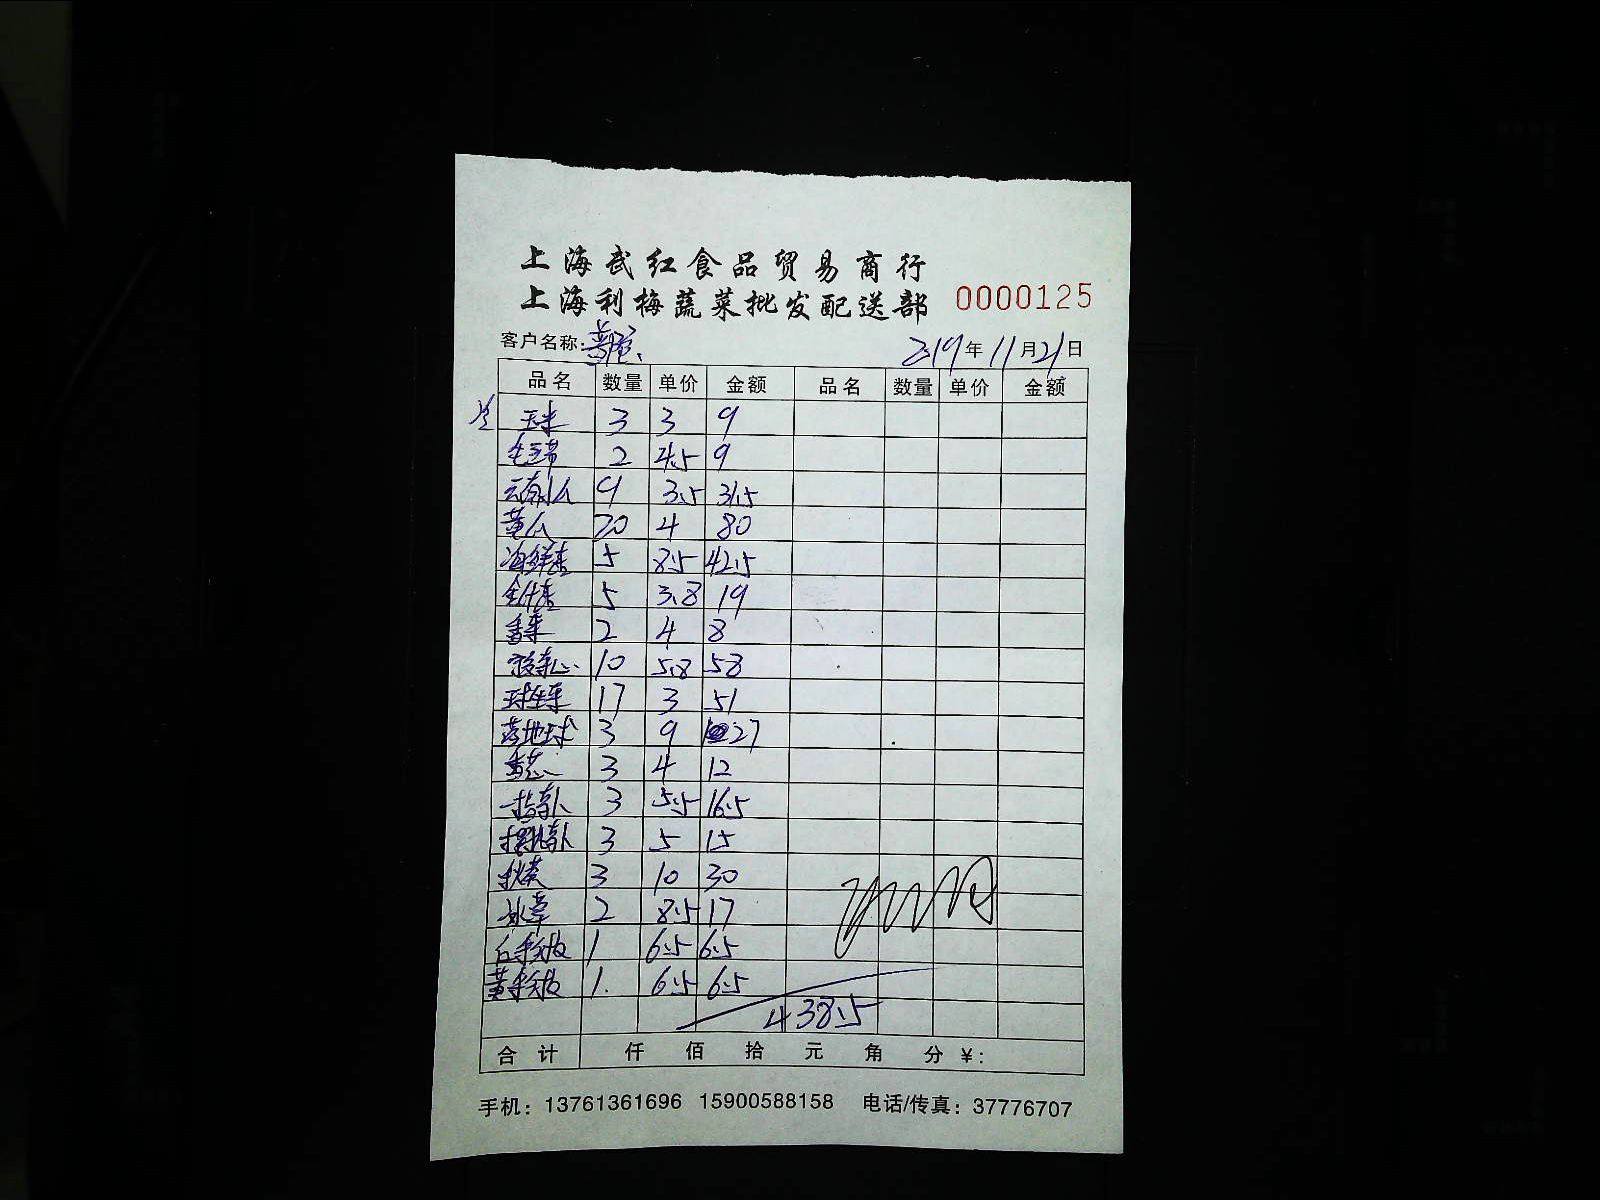 上海武红食品贸易商行
上海利梅蔬菜批发配送部 0000125
客户名称: 2019年11月21日
品名 数量 单价 金额 品名 数量 单价 金额
玉米 3 3 9
2 4.5 9
9 3.5 31.5
黄瓜 20 4 80
海鲜菇 5 8.5 42.5
金针菇 5 3.8 19
香菜 2 4 8
10 5.8 58
球生菜 17 3 51
落地球 3 9 27
香葱 3 4 12
3 5.5 16.5
3 5 15
秋葵 3 10 30
冰草 2 8.5 17
1 6.5 6.5
1. 6.5 6.5
438.5
合计 仟 佰 拾 元 角 分 ¥:
手机: 13761361696 15900588158 电话/传真: 37776707